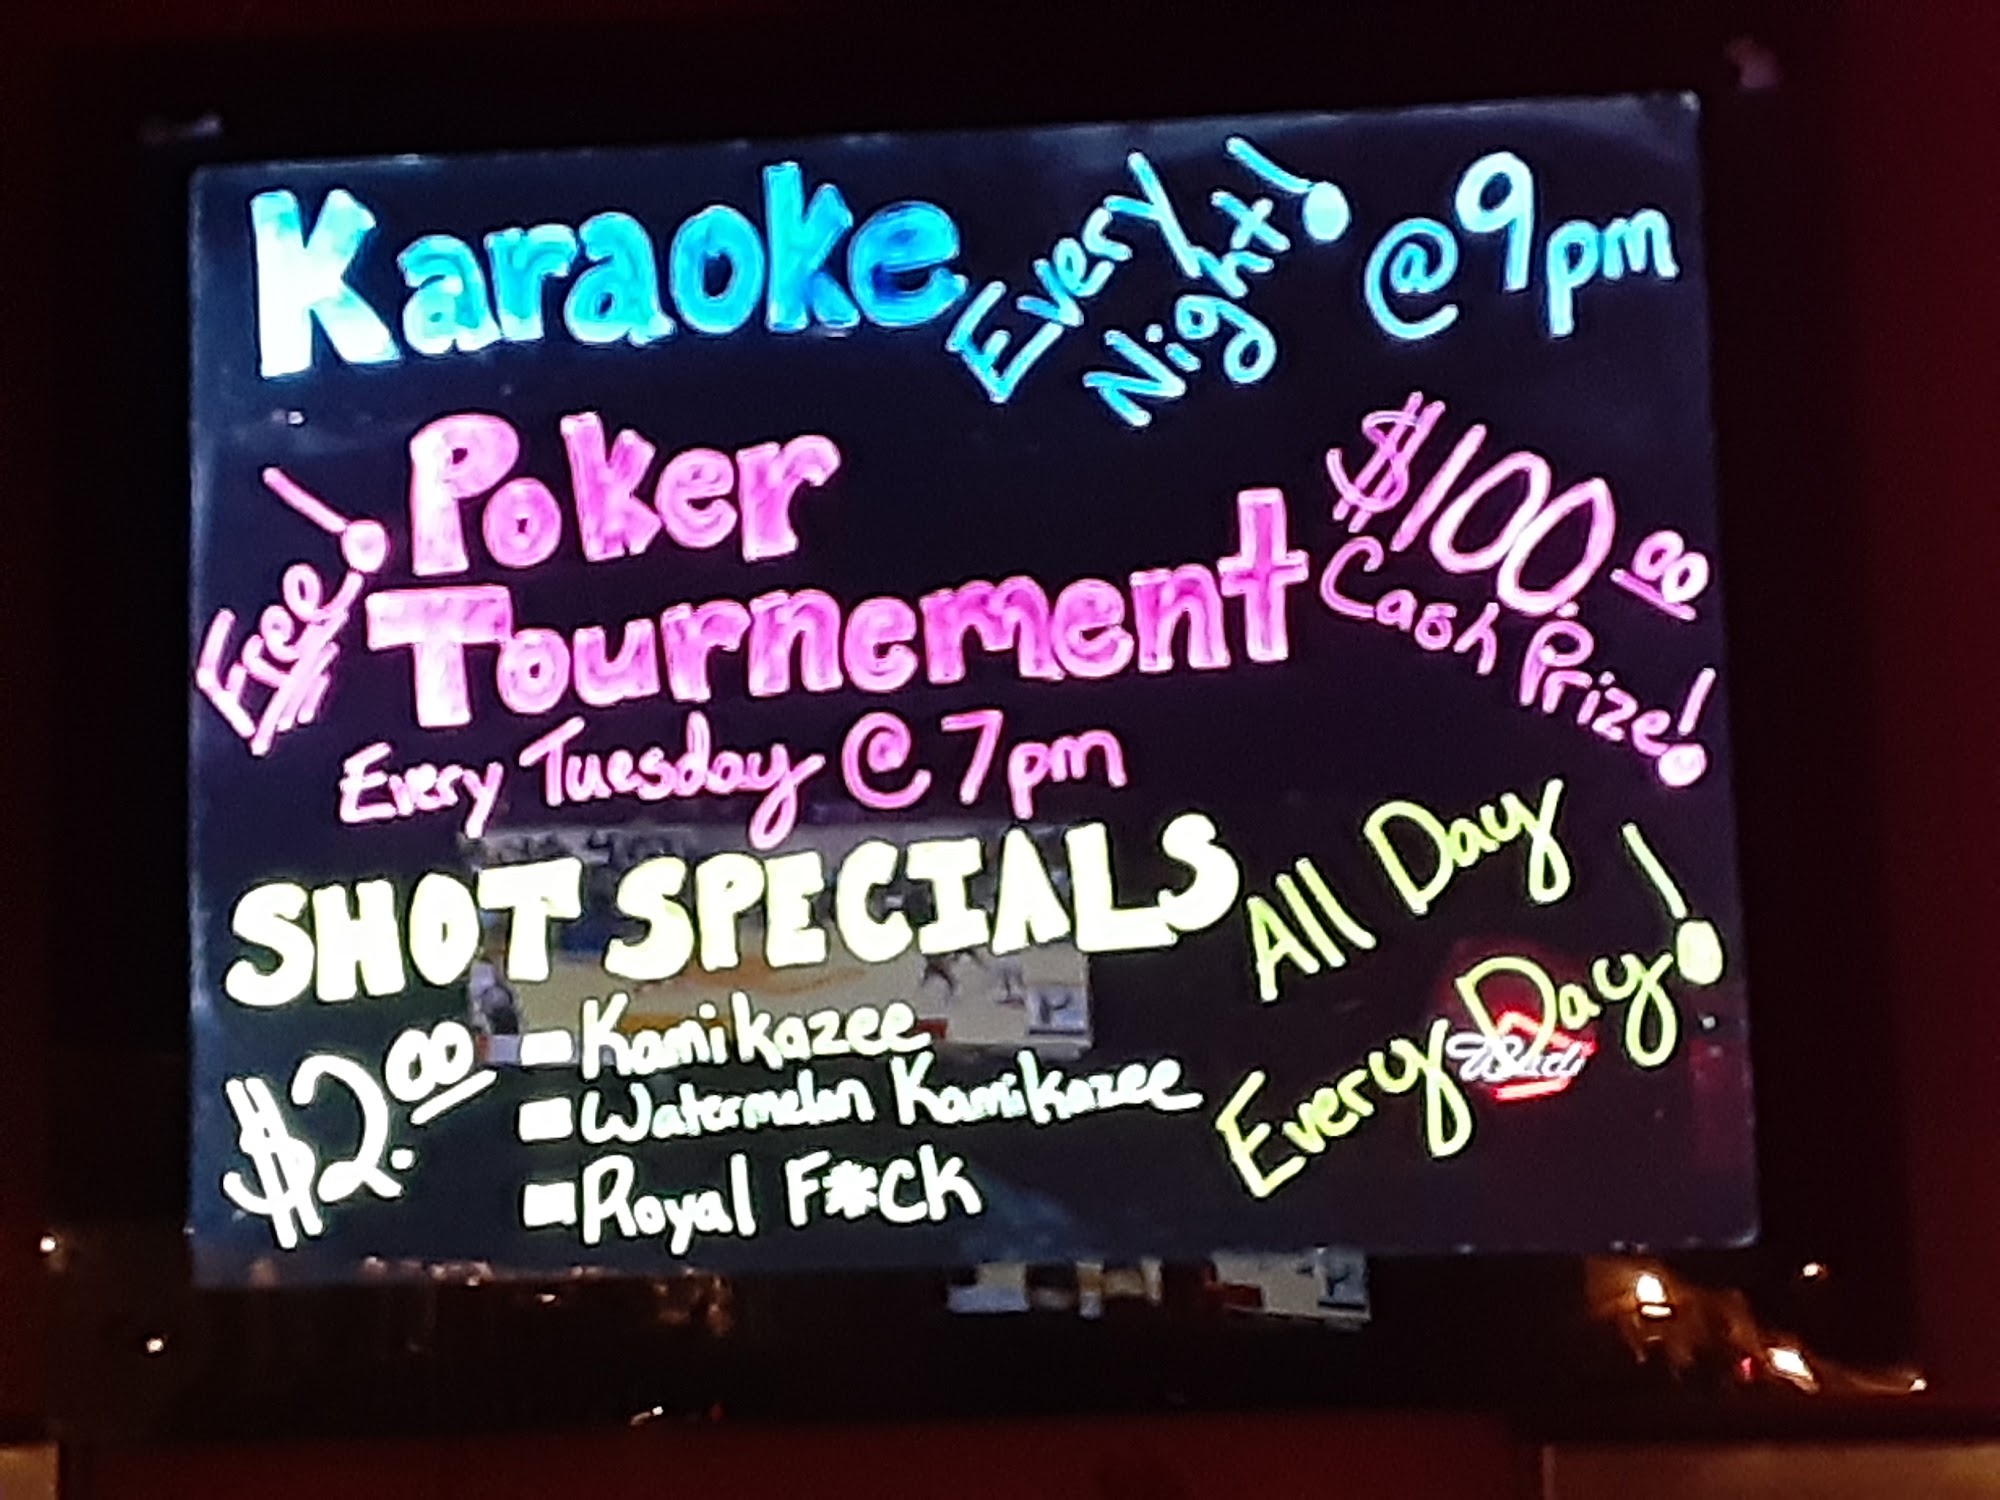 Karaoke Every Night! @ 9pm
Free! Poker
Tournement
$100.00
Cash Prize!
Every Tuesday @ 7pm
SHOT SPECIALS
All Day
Every Day!
$2.00
Kamikazee
Watermelon Kamikazee
Royal F*ck